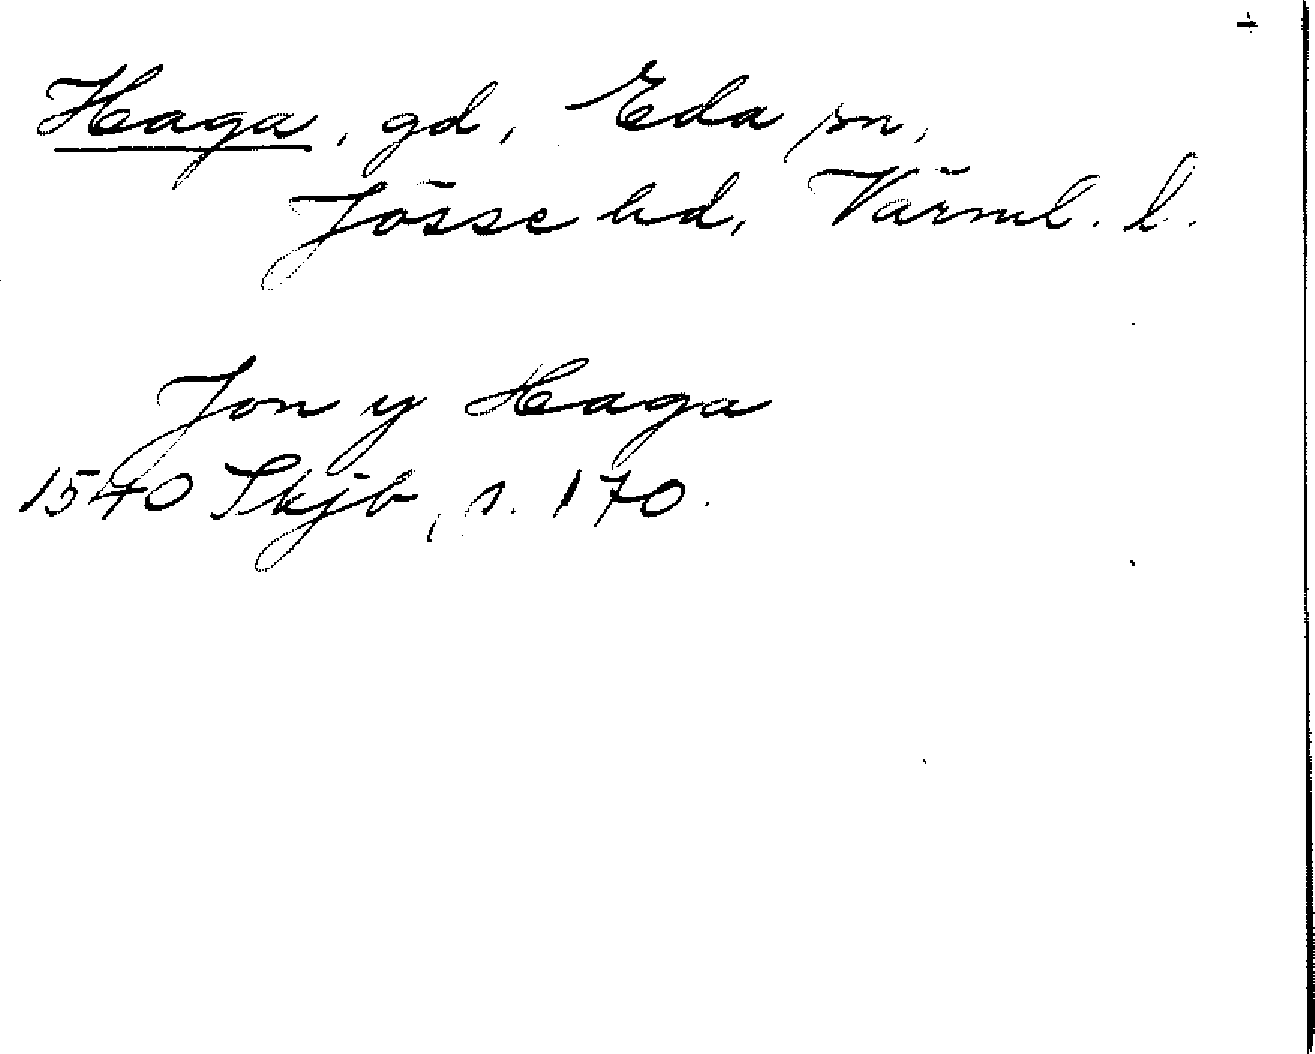 Haga, gd, Eda sn,
Jösse hd, Värml. l.
Jon y Haga
1540 Skjb, s. 170.